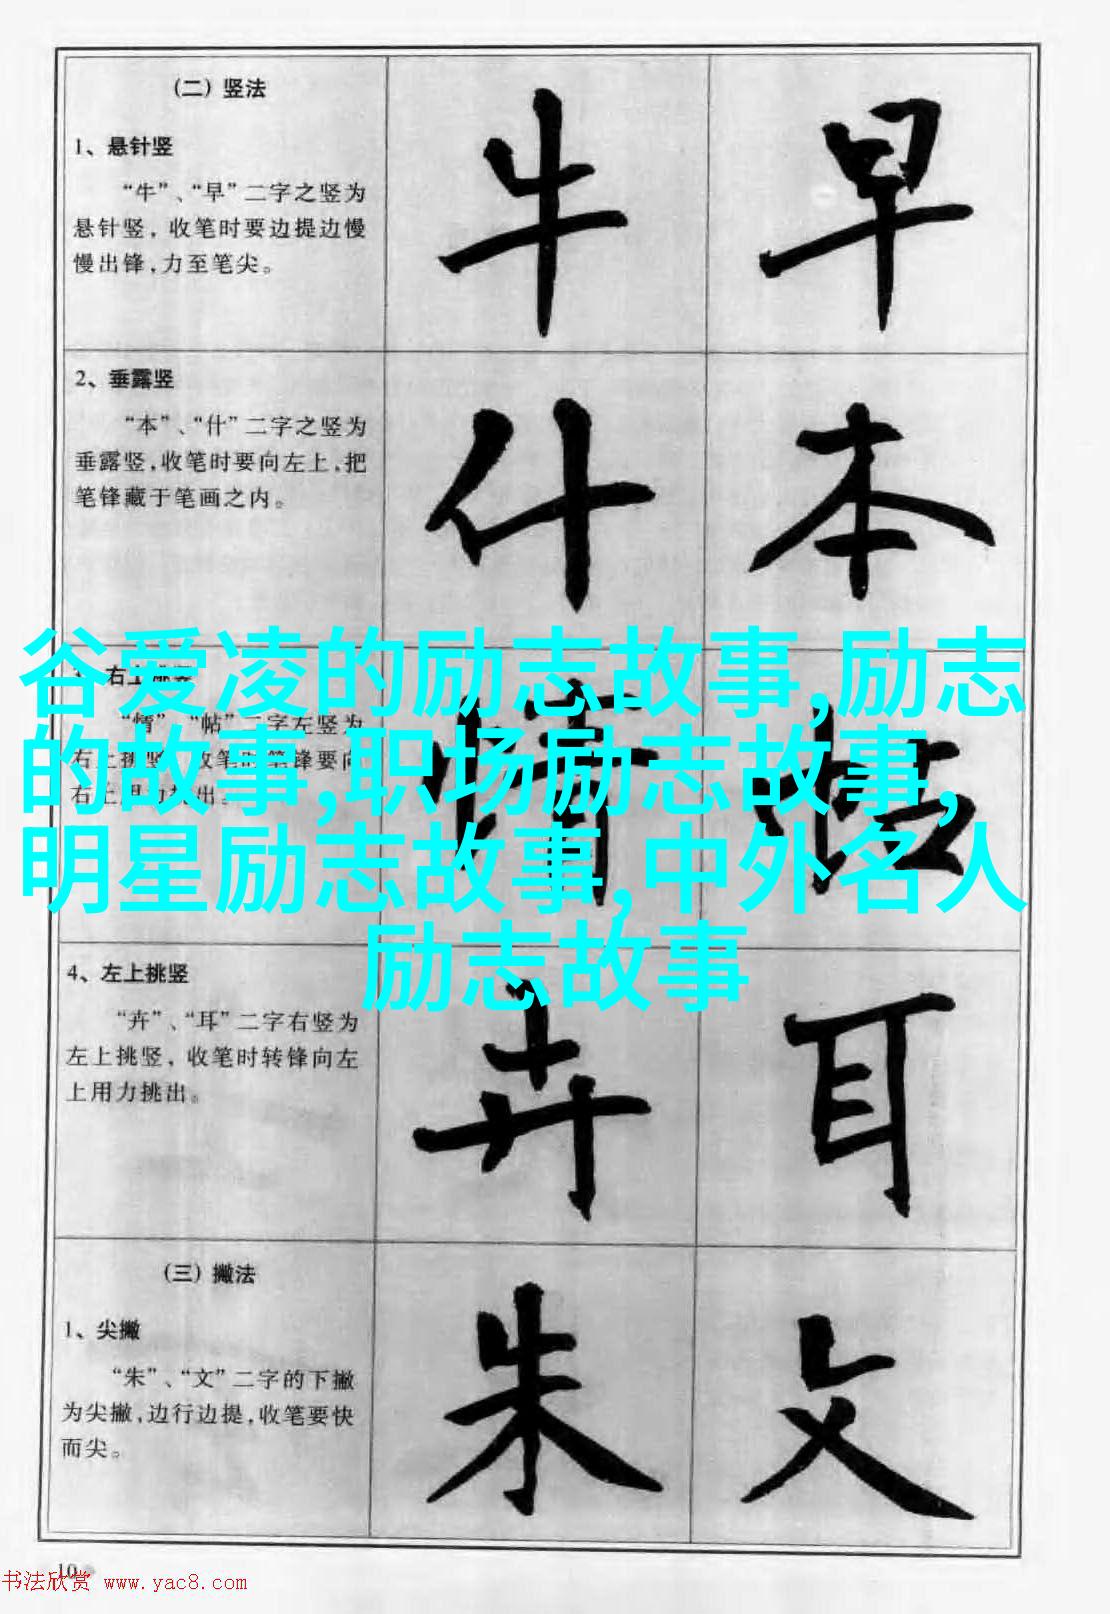 （二）竖法
1、悬针竖
“牛”、“早”二字之竖为
悬针竖，收笔时要边提边慢
慢出锋，力至笔尖。
牛 早
2、垂露竖
“本”、“什”二字之竖为
垂露竖，收笔时要向左上，把
笔锋藏于笔画之内。
什 本
谷爱凌的励志故事,励志
的故事,职场励志故事,
明星励志故事,中外名人
励志故事
右上挑竖
“情”、“帖”二字左竖为
右上挑竖，收笔时笔锋要向
右上用力挑出。
情 帖
4、左上挑竖
“卉”、“耳”二字右竖为
左上挑竖，收笔时转锋向左
上用力挑出。
卉 耳
（三）撇法
1、尖撇
“朱”、“文”二字的下撇
为尖撇，边行边提，收笔要快
而尖。
朱 文
10
书法欣赏 www.yac8.com